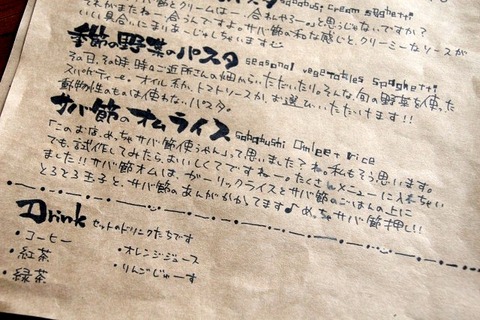 sababushi cream spghetti
それがまたね、合うんですよ。サバ節の和な感じとクリーミーなソースが
いい具合にまりあーじゅしちゃいます
季節の野菜のパスタ seasonal vegetables spaghetti
その日、その時、時のご近所さんの畑から、いただいたり。そんな旬の野菜を使った
スパゲティーニ。オイル系か、トマトソースか、お選びいただけます!!
動物性のものは使わない、パスタ。
サバ節のオムライス sababushi Omlet rice
「このお店、めっちゃサバ節使うやん」って思いました?ね。私もそう思います。
でも、試作してみたら、おいしくてですねー。たくさんメニューに入れちゃい
ました!!サバ節オムは、ガーリックライスとサバ節のごはんの上に
とろとろ玉子と、サバ節のあんがかかってます♪めっちゃサバ節押し!!
Drink セットのドリンクたちです
・コーヒー
・オレンジジュース
・紅茶
・りんごじゅーす
・緑茶